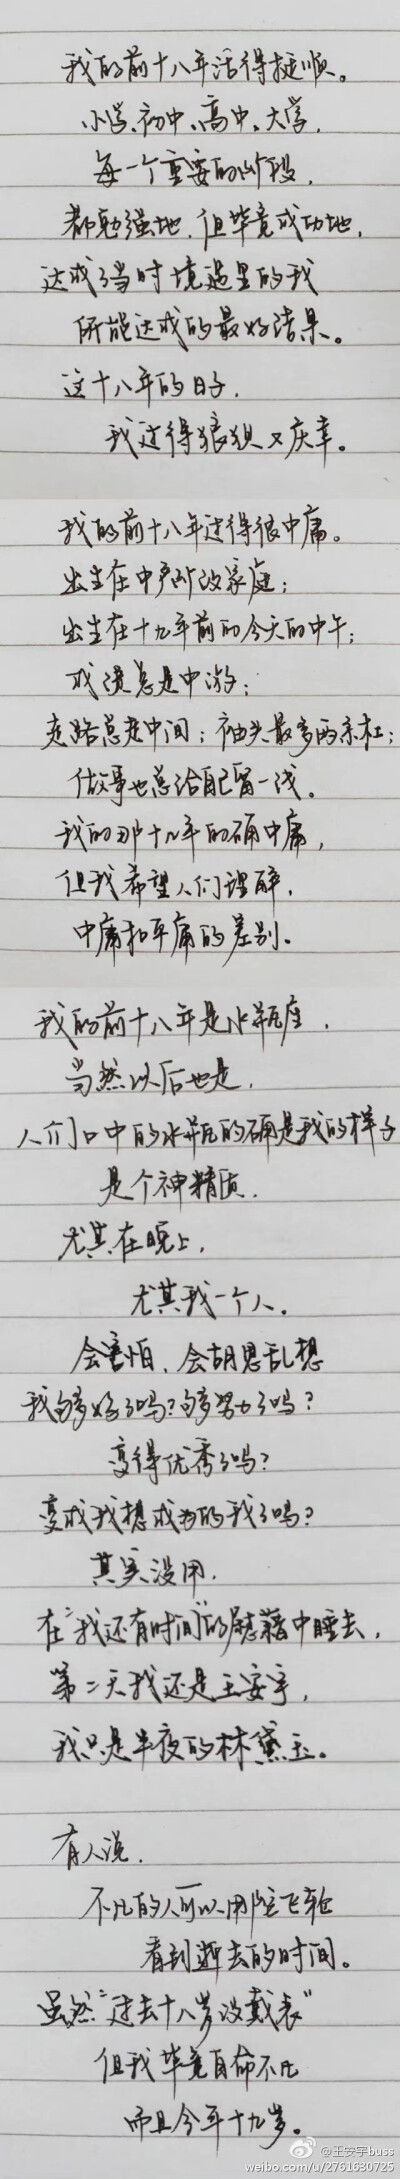 我的前十八年活得挺顺。
小学、初中、高中、大学,
每一个重要的阶段,
都勉强地,但毕竟成功地,
达成了当时境遇里的我
所能达成的最好结果。
这十八年的日子,
我过得狼狈又庆幸。
我的前十八年过得很中庸。
出生在中产阶级家庭;
出生在十九年前的今天的中午;
成绩总是中游;
走路总走中间;袖头最多两条杠;
做事也总给自己留一线。
我的那十八年的确中庸,
但我希望人们理解,
中庸和平庸的差别。
我的前十八年是水瓶座,
当然以后也是,
人们口中的水瓶的确是我的样子
是个神精质,
尤其在晚上,
尤其我一个人。
会害怕,会胡思乱想
我够好了吗?够努力了吗?
变得优秀了吗?
变成我想成为的我了吗?
其实没用,
在"我还有时间"的慰藉中睡去,
第二天我还是王安宇,
我只是半夜的林黛玉。
有人说,
不凡的人可以用陀飞轮
看到逝去的时间。
虽然"过去十八岁没戴表"
但我毕竟自命不凡
而且今年十九岁。
@王安宇buss
weibo.com/u/2761630725